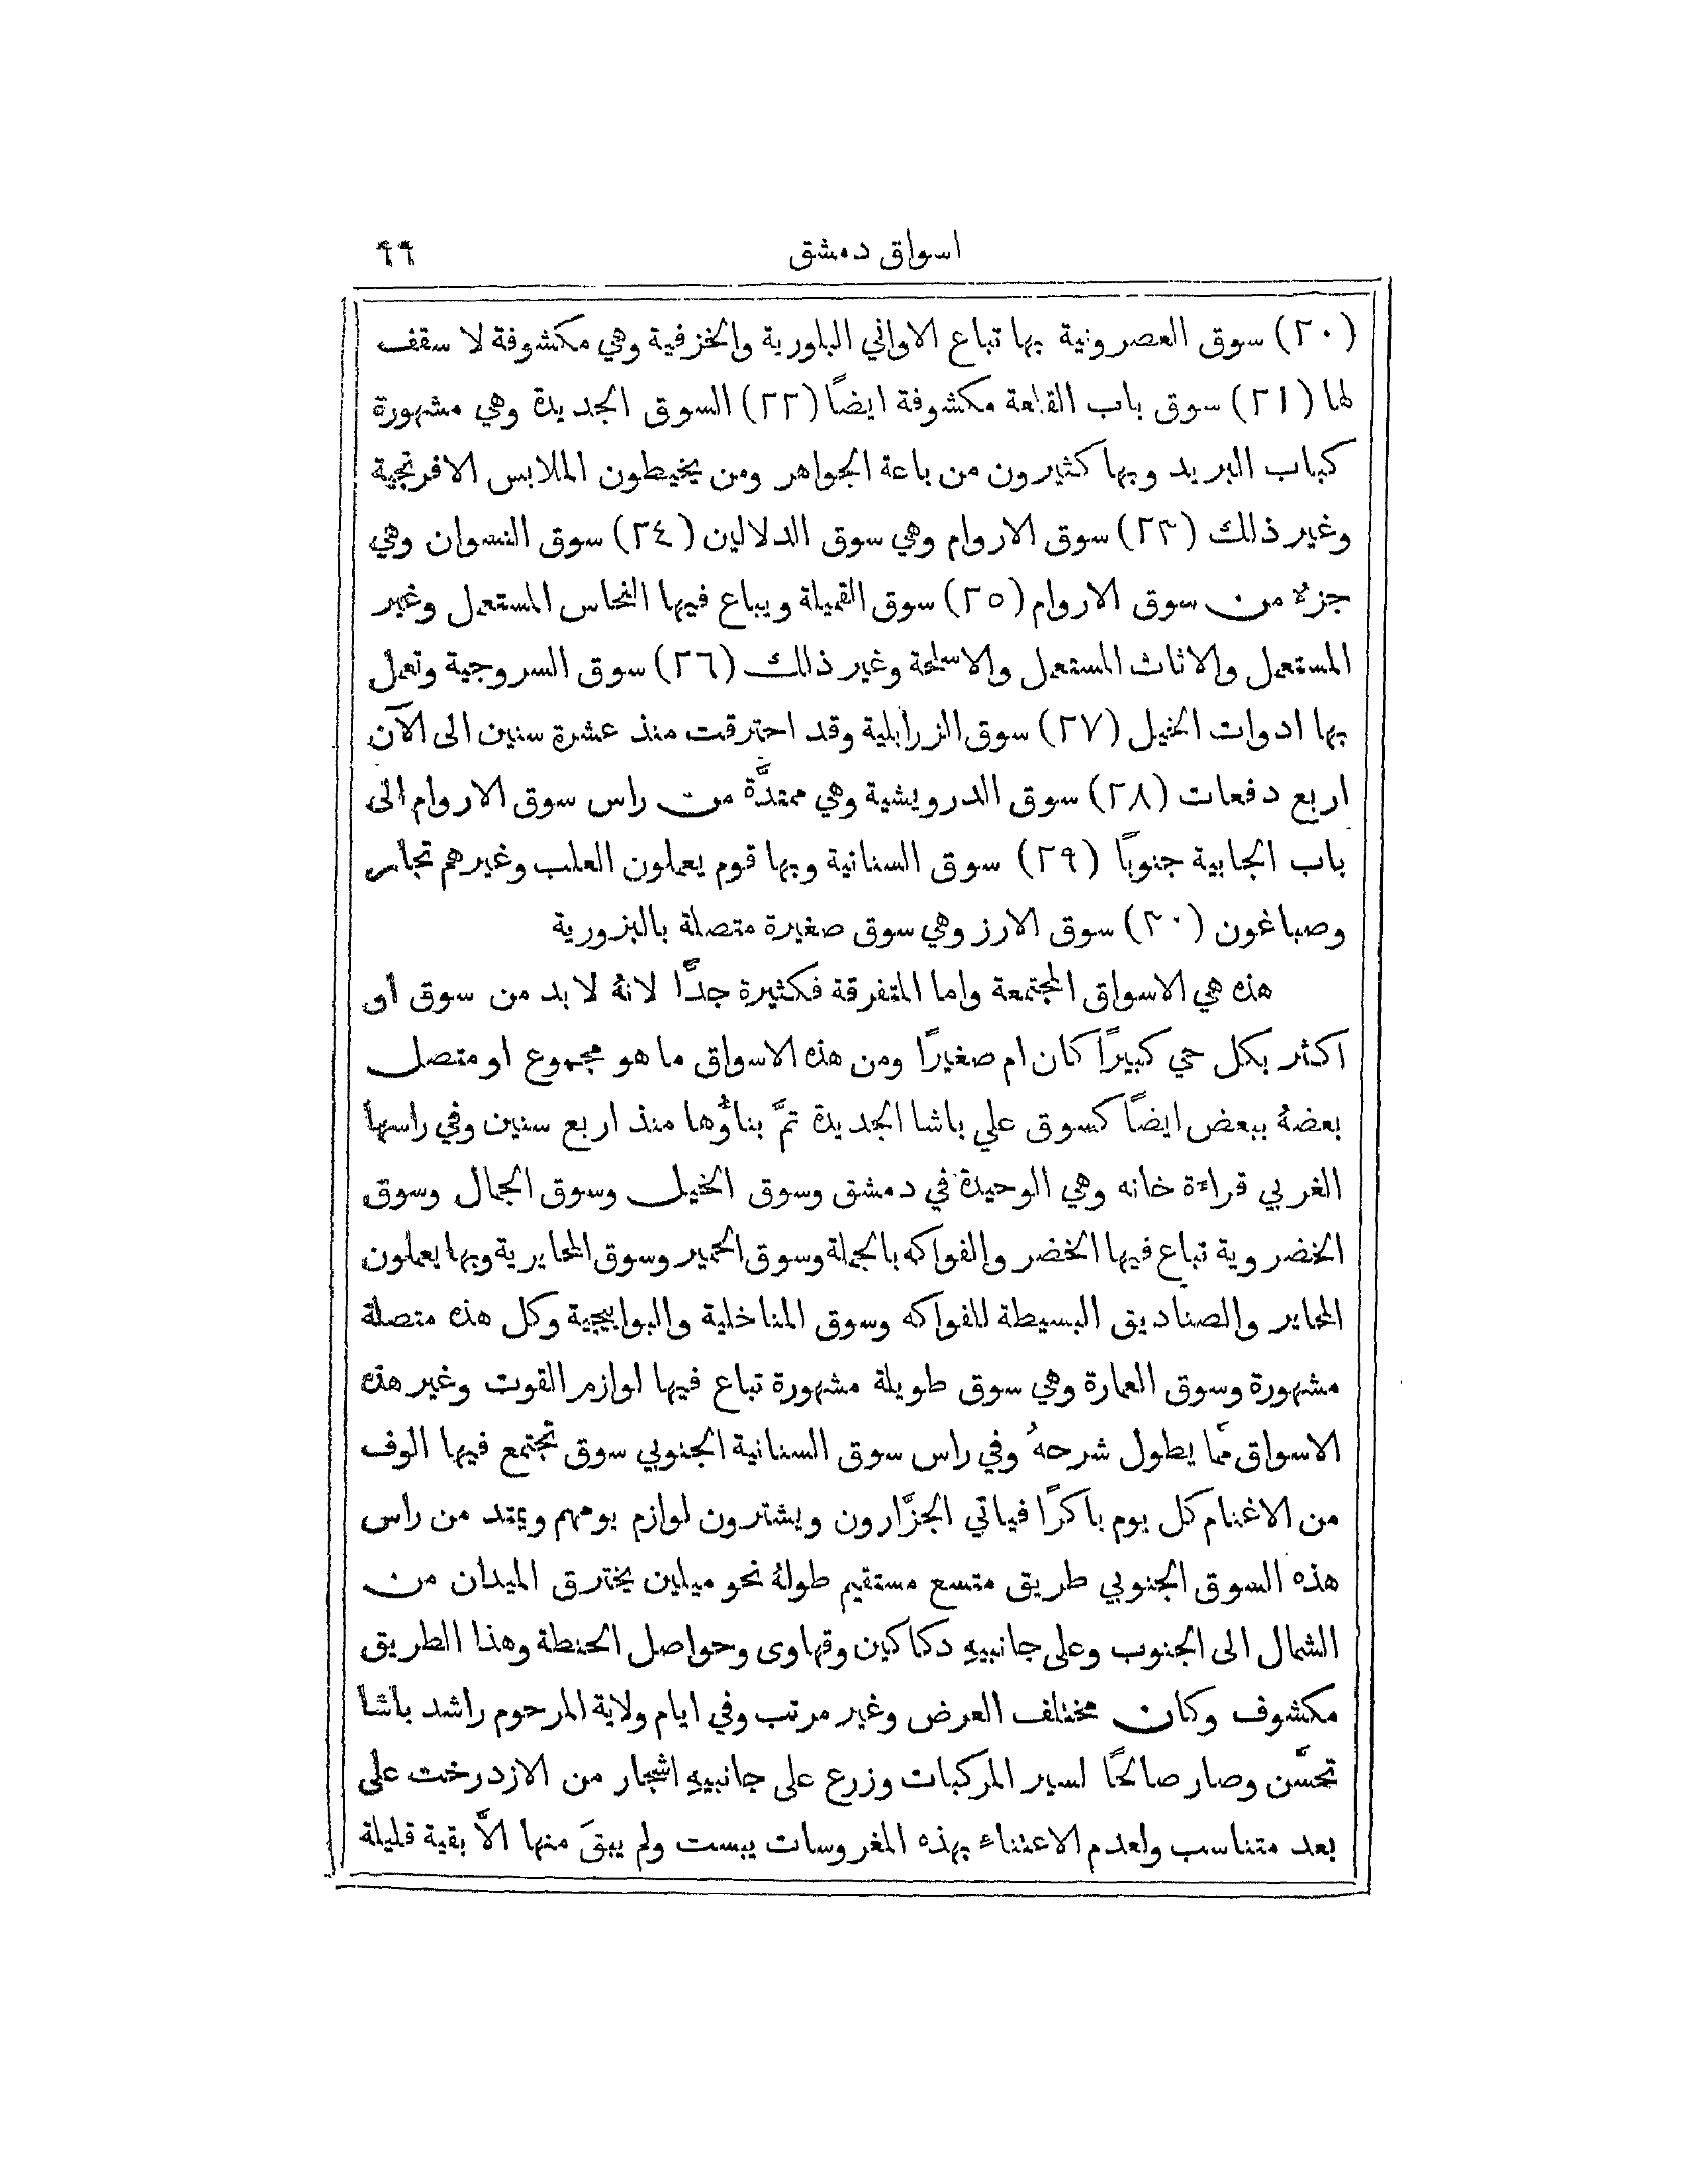 اسواق دمشق ٩٩
(٢٠) سوق العصرونية بها تباع الاواني البلورية والخزفية وهي مكشوفة لا سقف
لها (٢١) سوق باب القلعة مكشوفة ايضًا (٢٢) السوق الجديدة وهي مشهورة
كباب البريد وبها كثيرون من باعة الجواهر ومن يخيطون الملابس الافرنجية
وغير ذلك (٢٣) سوق الاروام وهي سوق الدلالين (٢٤) سوق النسوان وهي
جزء من سوق الاروام (٢٥) سوق القميلة ويباع فيها النحاس المستعمل وغير
المستعمل والاثاث المستعمل والاسلحة وغير ذلك (٢٦) سوق السروجية وتعمل
بها ادوات الخيل (٢٧) سوق الزرابلية وقد احترقت منذ عشرة سنين الى الآن
اربع دفعات (٢٨) سوق الدرويشية وهي ممتدَّة من راس سوق الاروام الى
باب الجابية جنوبًا (٢٩) سوق السنانية وبها قوم يعملون العلب وغيرهم تجار
وصباغون (٣٠) سوق الارز وهي سوق صغيرة متصلة بالبزورية
هذه هي الاسواق المجتمعة واما المتفرقة فكثيرة جدًّا لانهُ لا بد من سوق او
اكثر بكل حي كبيرًا كان ام صغيرًا ومن هذه الاسواق ما هو مجموع او متصل
بعضهُ ببعض ايضًا كسوق علي باشا الجديدة تمَّ بناؤُها منذ اربع سنين وفي راسها
الغربي قراءة خانه وهي الوحيدة في دمشق وسوق الخيل وسوق الجمال وسوق
الخضروية تباع فيها الخضر والفواكه بالجملة وسوق الحمير وسوق المحايرية وبها يعملون
المحاير والصناديق البسيطة للفواكه وسوق المناخلية والبوابيجية وكل هذه متصلة
مشهورة وسوق العمارة وهي سوق طويلة مشهورة تباع فيها لوازم القوت وغير هذه
الاسواق ممَّا يطول شرحهُ وفي راس سوق السنانية الجنوبي سوق تجتمع فيها الوف
من الاغنام كل يوم باكرًا فياتي الجزَّارون ويشترون لوازم يومهم ويمتد من راس
هذه السوق الجنوبي طريق متسع مستقيم طولهُ نحو ميلين يخترق الميدان من
الشمال الى الجنوب وعلى جانبيهِ دكاكين وقهاوى وحواصل الحنطة وهذا الطريق
مكشوف وكان مختلف العرض وغير مرتب وفي ايام ولاية المرحوم راشد باشا
تحسَّن وصار صالحًا لسير المركبات وزرع على جانبيهِ اشجار من الازدرخت على
بعد متناسب ولعدم الاعتناء بهذه المغروسات يبست ولم يبقَ منها الاَّ بقية قليلة